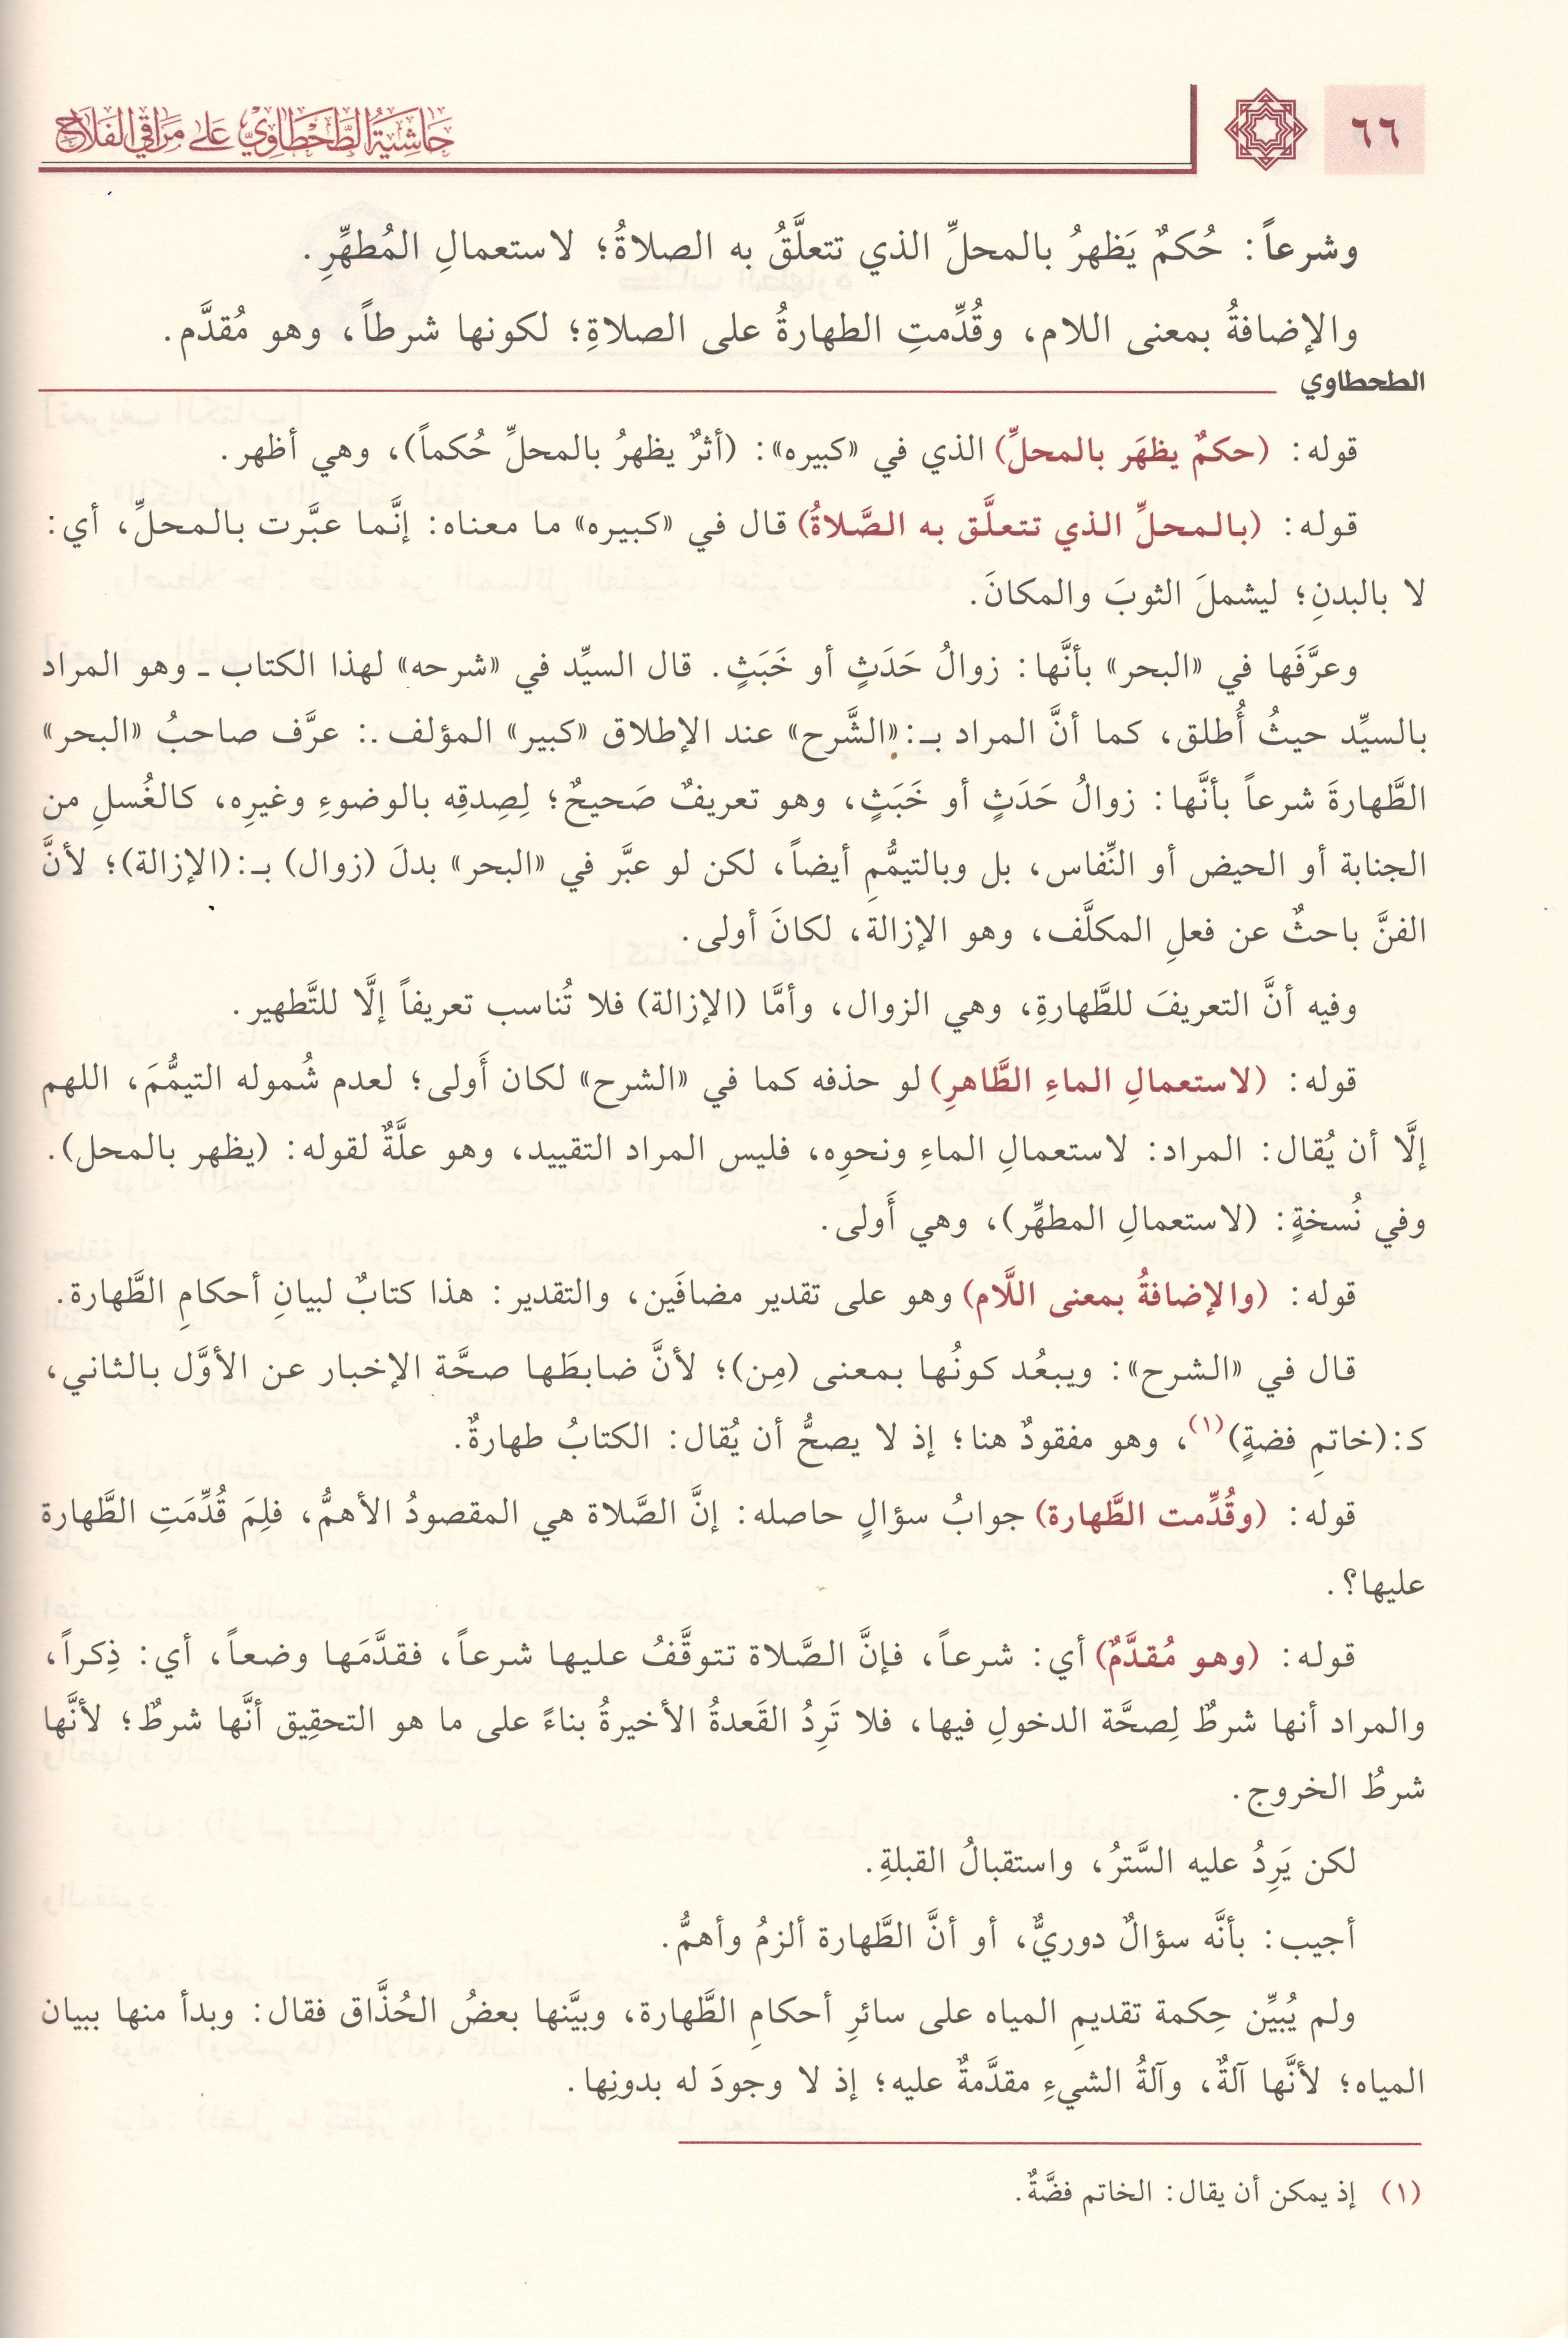 ٦٦
حَاشِيَةُ الطَّحْطَاوِيِّ عَلى مَرَاقِي الفَلَاحِ
وشرعاً: حُكمٌ يَظهرُ بالمحلِّ الذي تتعلَّقُ به الصلاةُ؛ لاستعمالِ المُطهِّرِ.
والإضافةُ بمعنى اللام، وقُدِّمتِ الطهارةُ على الصلاةِ؛ لكونها شرطاً، وهو مُقدَّم.
الطحطاوي
قوله: (حكمٌ يظهَر بالمحلِّ) الذي في «كبيره»: (أثرٌ يظهرُ بالمحلِّ حُكماً)، وهي أظهر.
قوله: (بالمحلِّ الذي تتعلَّق به الصَّلاةُ) قال في «كبيره» ما معناه: إنَّما عبَّرت بالمحلِّ، أي:
لا بالبدنِ؛ ليشملَ الثوبَ والمكانَ.
وعرَّفَها في «البحر» بأنَّها: زوالُ حَدَثٍ أو خَبَثٍ. قال السيِّد في «شرحه» لهذا الكتاب ـ وهو المراد
بالسيِّد حيثُ أُطلق، كما أنَّ المراد بـ:«الشَّرح» عند الإطلاق «كبير» المؤلف ـ: عرَّف صاحبُ «البحر»
الطَّهارةَ شرعاً بأنَّها: زوالُ حَدَثٍ أو خَبَثٍ، وهو تعريفٌ صَحيحٌ؛ لِصِدقِه بالوضوءِ وغيرِه، كالغُسلِ من
الجنابة أو الحيض أو النِّفاس، بل وبالتيمُّمِ أيضاً، لكن لو عبَّر في «البحر» بدلَ (زوال) بـ:(الإزالة)؛ لأنَّ
الفنَّ باحثٌ عن فعلِ المكلَّف، وهو الإزالة، لكانَ أولى.
وفيه أنَّ التعريفَ للطَّهارةِ، وهي الزوال، وأمَّا (الإزالة) فلا تُناسب تعريفاً إلَّا للتَّطهير.
قوله: (لاستعمالِ الماءِ الطَّاهرِ) لو حذفه كما في «الشرح» لكان أَولى؛ لعدم شُموله التيمُّمَ، اللهم
إلَّا أن يُقال: المراد: لاستعمالِ الماءِ ونحوِه، فليس المراد التقييد، وهو علَّةٌ لقوله: (يظهر بالمحل).
وفي نُسخةٍ: (لاستعمالِ المطهِّر)، وهي أَولى.
قوله: (والإضافةُ بمعنى اللَّام) وهو على تقدير مضافَين، والتقدير: هذا كتابٌ لبيانِ أحكامِ الطَّهارة.
قال في «الشرح»: ويبعُد كونُها بمعنى (مِن)؛ لأنَّ ضابطَها صحَّة الإخبار عن الأوَّل بالثاني،
كـ:(خاتمِ فضةٍ)(١)، وهو مفقودٌ هنا؛ إذ لا يصحُّ أن يُقال: الكتابُ طهارةٌ.
قوله: (وقُدِّمت الطَّهارة) جوابُ سؤالٍ حاصله: إنَّ الصَّلاة هي المقصودُ الأهمُّ، فلِمَ قُدِّمَتِ الطَّهارة
عليها؟.
قوله: (وهو مُقدَّمٌ) أي: شرعاً، فإنَّ الصَّلاة تتوقَّفُ عليها شرعاً، فقدَّمَها وضعاً، أي: ذِكراً،
والمراد أنها شرطٌ لِصحَّة الدخولِ فيها، فلا تَرِدُ القَعدةُ الأخيرةُ بناءً على ما هو التحقِيق أنَّها شرطٌ؛ لأنَّها
شرطُ الخروج.
لكن يَرِدُ عليه السَّترُ، واستقبالُ القبلةِ.
أجيب: بأنَّه سؤالٌ دوريٌّ، أو أنَّ الطَّهارة ألزمُ وأهمُّ.
ولم يُبيِّن حِكمة تقديمِ المياه على سائرِ أحكامِ الطَّهارة، وبيَّنها بعضُ الحُذَّاق فقال: وبدأ منها ببيان
المياه؛ لأنَّها آلةٌ، وآلةُ الشيءِ مقدَّمةٌ عليه؛ إذ لا وجودَ له بدونِها.
(١) إذ يمكن أن يقال: الخاتم فضَّةٌ.